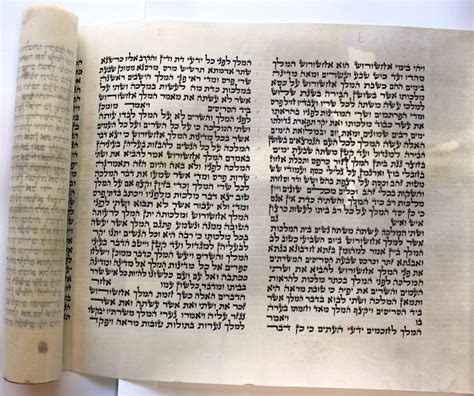 ויהי בימי אחשורוש הוא אחשורוש המלך
מהדו ועד כוש שבע ועשרים ומאה מדינה
בימים ההם כשבת המלך אחשורוש על כסא
מלכותו אשר בשושן הבירה בשנת שלוש
למלכו עשה משתה לכל שריו ועבדיו חיל פרס ומדי
הפרתמים ושרי המדינות לפניו בהראתו את
עשר כבוד מלכותו ואת יקר תפארת גדולתו
ימים רבים שמונים ומאת יום ובמלואת
הימים האלה עשה המלך לכל העם הנמצאים
בשושן הבירה למגדול ועד קטן משתה שבעת
ימים בחצר גנת ביתן המלך חור כרפס ותכלת אחוז
בחבלי בוץ וארגמן על גלילי כסף ועמודי שש
מטות זהב וכסף על רצפת בהט ושש ודר
וסחרת והשקות בכלי זהב וכלים מכלים שונים ויין
מלכות רב כיד המלך והשתיה כדת אין אנס
כי כן יסד המלך על כל רב ביתו לעשות כרצון
איש ואיש
גם ושתי המלכה עשתה משתה נשים בית המלכות
אשר למלך אחשורוש ביום השביעי כטוב לב
המלך ביין אמר למהומן בזתא חרבונא בגתא
ואבגתא זתר וכרכס שבעת הסריסים המשרתים
את פני המלך אחשורוש להביא את ושתי
המלכה לפני המלך בכתר מלכות להראות
העמים והשרים את יפיה כי טובת מראה היא
ותמאן המלכה ושתי לבוא בדבר המלך אשר
ביד הסריסים ויקצף המלך מאד וחמתו
בערה בו ויאמר
המלך לחכמים ידעי העתים כי כן דבר
המלך לפני כל ידעי דת ודין והקרב אליו כרשנא
שתר אדמתא תרשיש מרס מרסנא ממוכן שבעת
שרי פרס ומדי ראי פני המלך הישבים ראשנה
במלכות כדת מה לעשות במלכה ושתי על
אשר לא עשתה את מאמר המלך אחשורוש
ביד הסריסים ויאמר מומכן
לפני המלך והשרים לא על המלך לבדו עותה
ושתי המלכה כי על כל השרים ועל כל העמים
אשר בכל מדינות המלך אחשורוש כי יצא דבר
המלכה על כל הנשים להבזות בעליהן בעיניהן
באמרם המלך אחשורוש אמר להביא את ושתי
המלכה לפניו ולא באה והיום הזה תאמרנה
שרות פרס ומדי אשר שמעו את דבר המלכה לכל
שרי המלך וכדי בזיון וקצף אם על המלך
טוב יצא דבר מלכות מלפניו ויכתב בדתי
פרס ומדי ולא יעבור אשר לא תבוא ושתי לפני
המלך אחשורוש ומלכותה יתן המלך לרעותה
הטובה ממנה ונשמע פתגם המלך אשר יעשה
בכל מלכותו כי רבה היא וכל הנשים יתנו יקר
לבעליהן למגדול ועד קטן וייטב הדבר בעיני
המלך והשרים ויעש המלך כדבר ממוכן וישלח
ספרים אל כל מדינות המלך אל מדינה ומדינה
ככתבה ואל עם ועם כלשונו להיות כל איש שרר
בביתו ומדבר כלשון עמו אחר
הדברים האלה כשך חמת המלך אחשורוש
זכר את ושתי ואת אשר עשתה ואת אשר
נגזר עליה ויאמרו נערי המלך משרתיו יבקשו
למלך נערות בתולות טובות מראה ויפקד